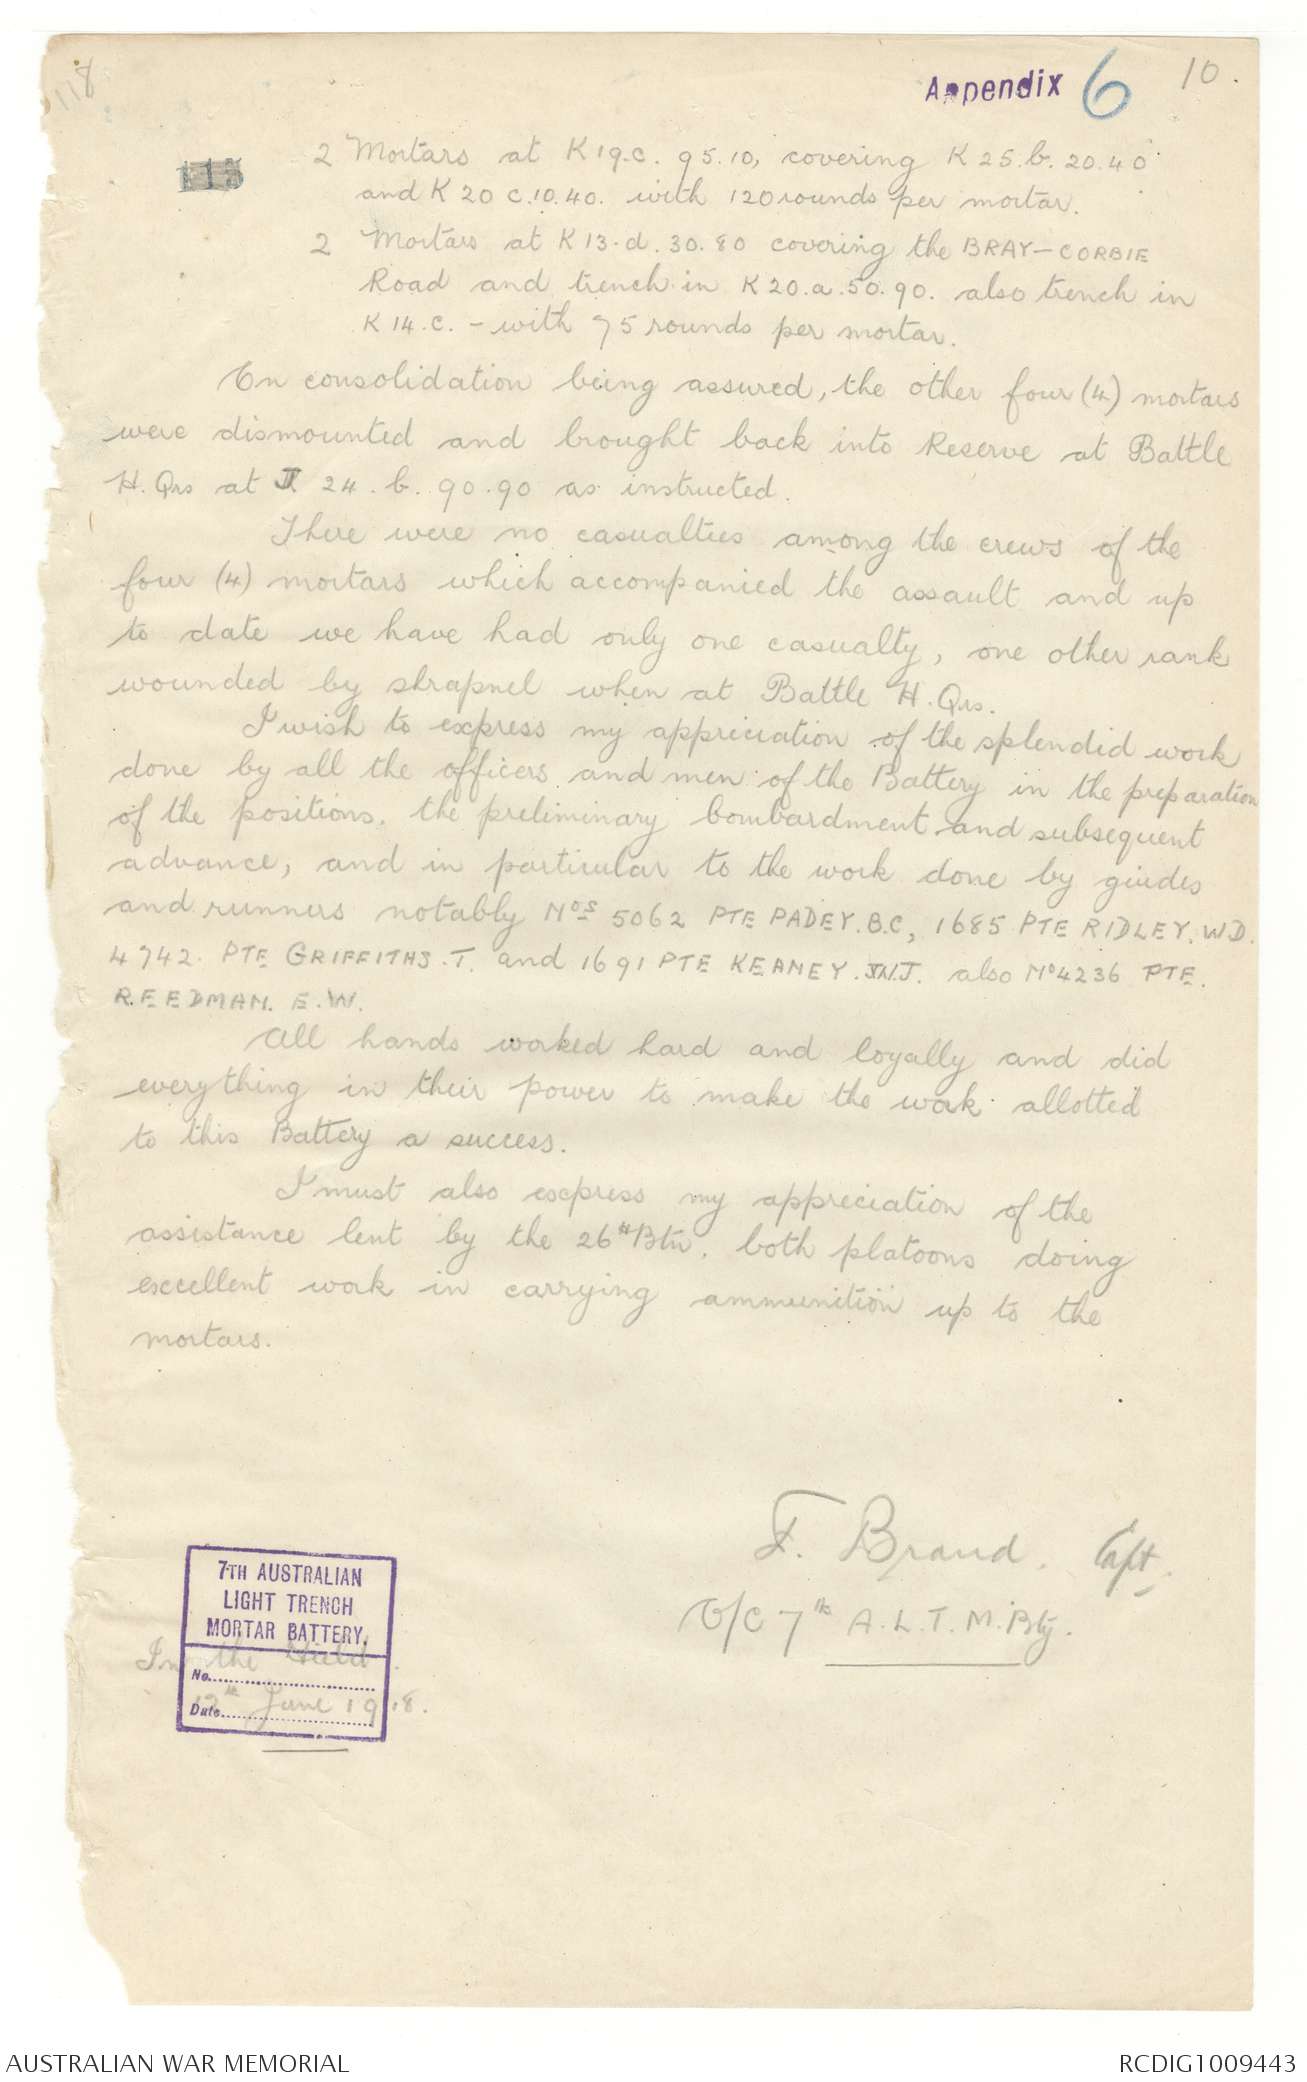 118
Appendix 6 10.
115
2 Mortars at K 19.c. 95.10, covering K 25.b. 20.40
and K 20 c.10.40. with 120 rounds per mortar.
2 Mortars at K 13.d. 30.80 covering the BRAY-CORBIE
Road and trench in K 20.a.50.90. also trench in
K 14.c. - with 75 rounds per mortar.
On consolidation being assured, the other four (4) mortars
were dismounted and brought back into Reserve at Battle
H. Qrs at J 24.b. 90.90 as instructed.
There were no casualties among the crews of the
four (4) mortars which accompanied the assault and up
to date we have had only one casualty, one other rank
wounded by shrapnel when at Battle H.Qrs.
I wish to express my appreciation of the splendid work
done by all the officers and men of the Battery in the preparation
of the positions. the preliminary bombardment and subsequent
advance, and in particular to the work done by guides
and runners notably Nos 5062 PTE PADEY. B.C, 1685 PTE RIDLEY. W.D.
4742. PTE GRIFFITHS. T. and 1691 PTE KEANEY. J. also No 4236 PTE.
REEDMAN. E.W.
All hands worked hard and loyally and did
everything in their power to make the work allotted
to this Battery a success.
I must also express my appreciation of the
assistance lent by the 26th Btn. both platoons doing
excellent work in carrying ammunition up to the
mortars.
F. Brand. Capt.
O/C 7th A.L.T.M. Bty.
7TH AUSTRALIAN
LIGHT TRENCH
MORTAR BATTERY.
In the Field.
No.
12th June 1918.
Date
AUSTRALIAN WAR MEMORIAL RCDIG1009443